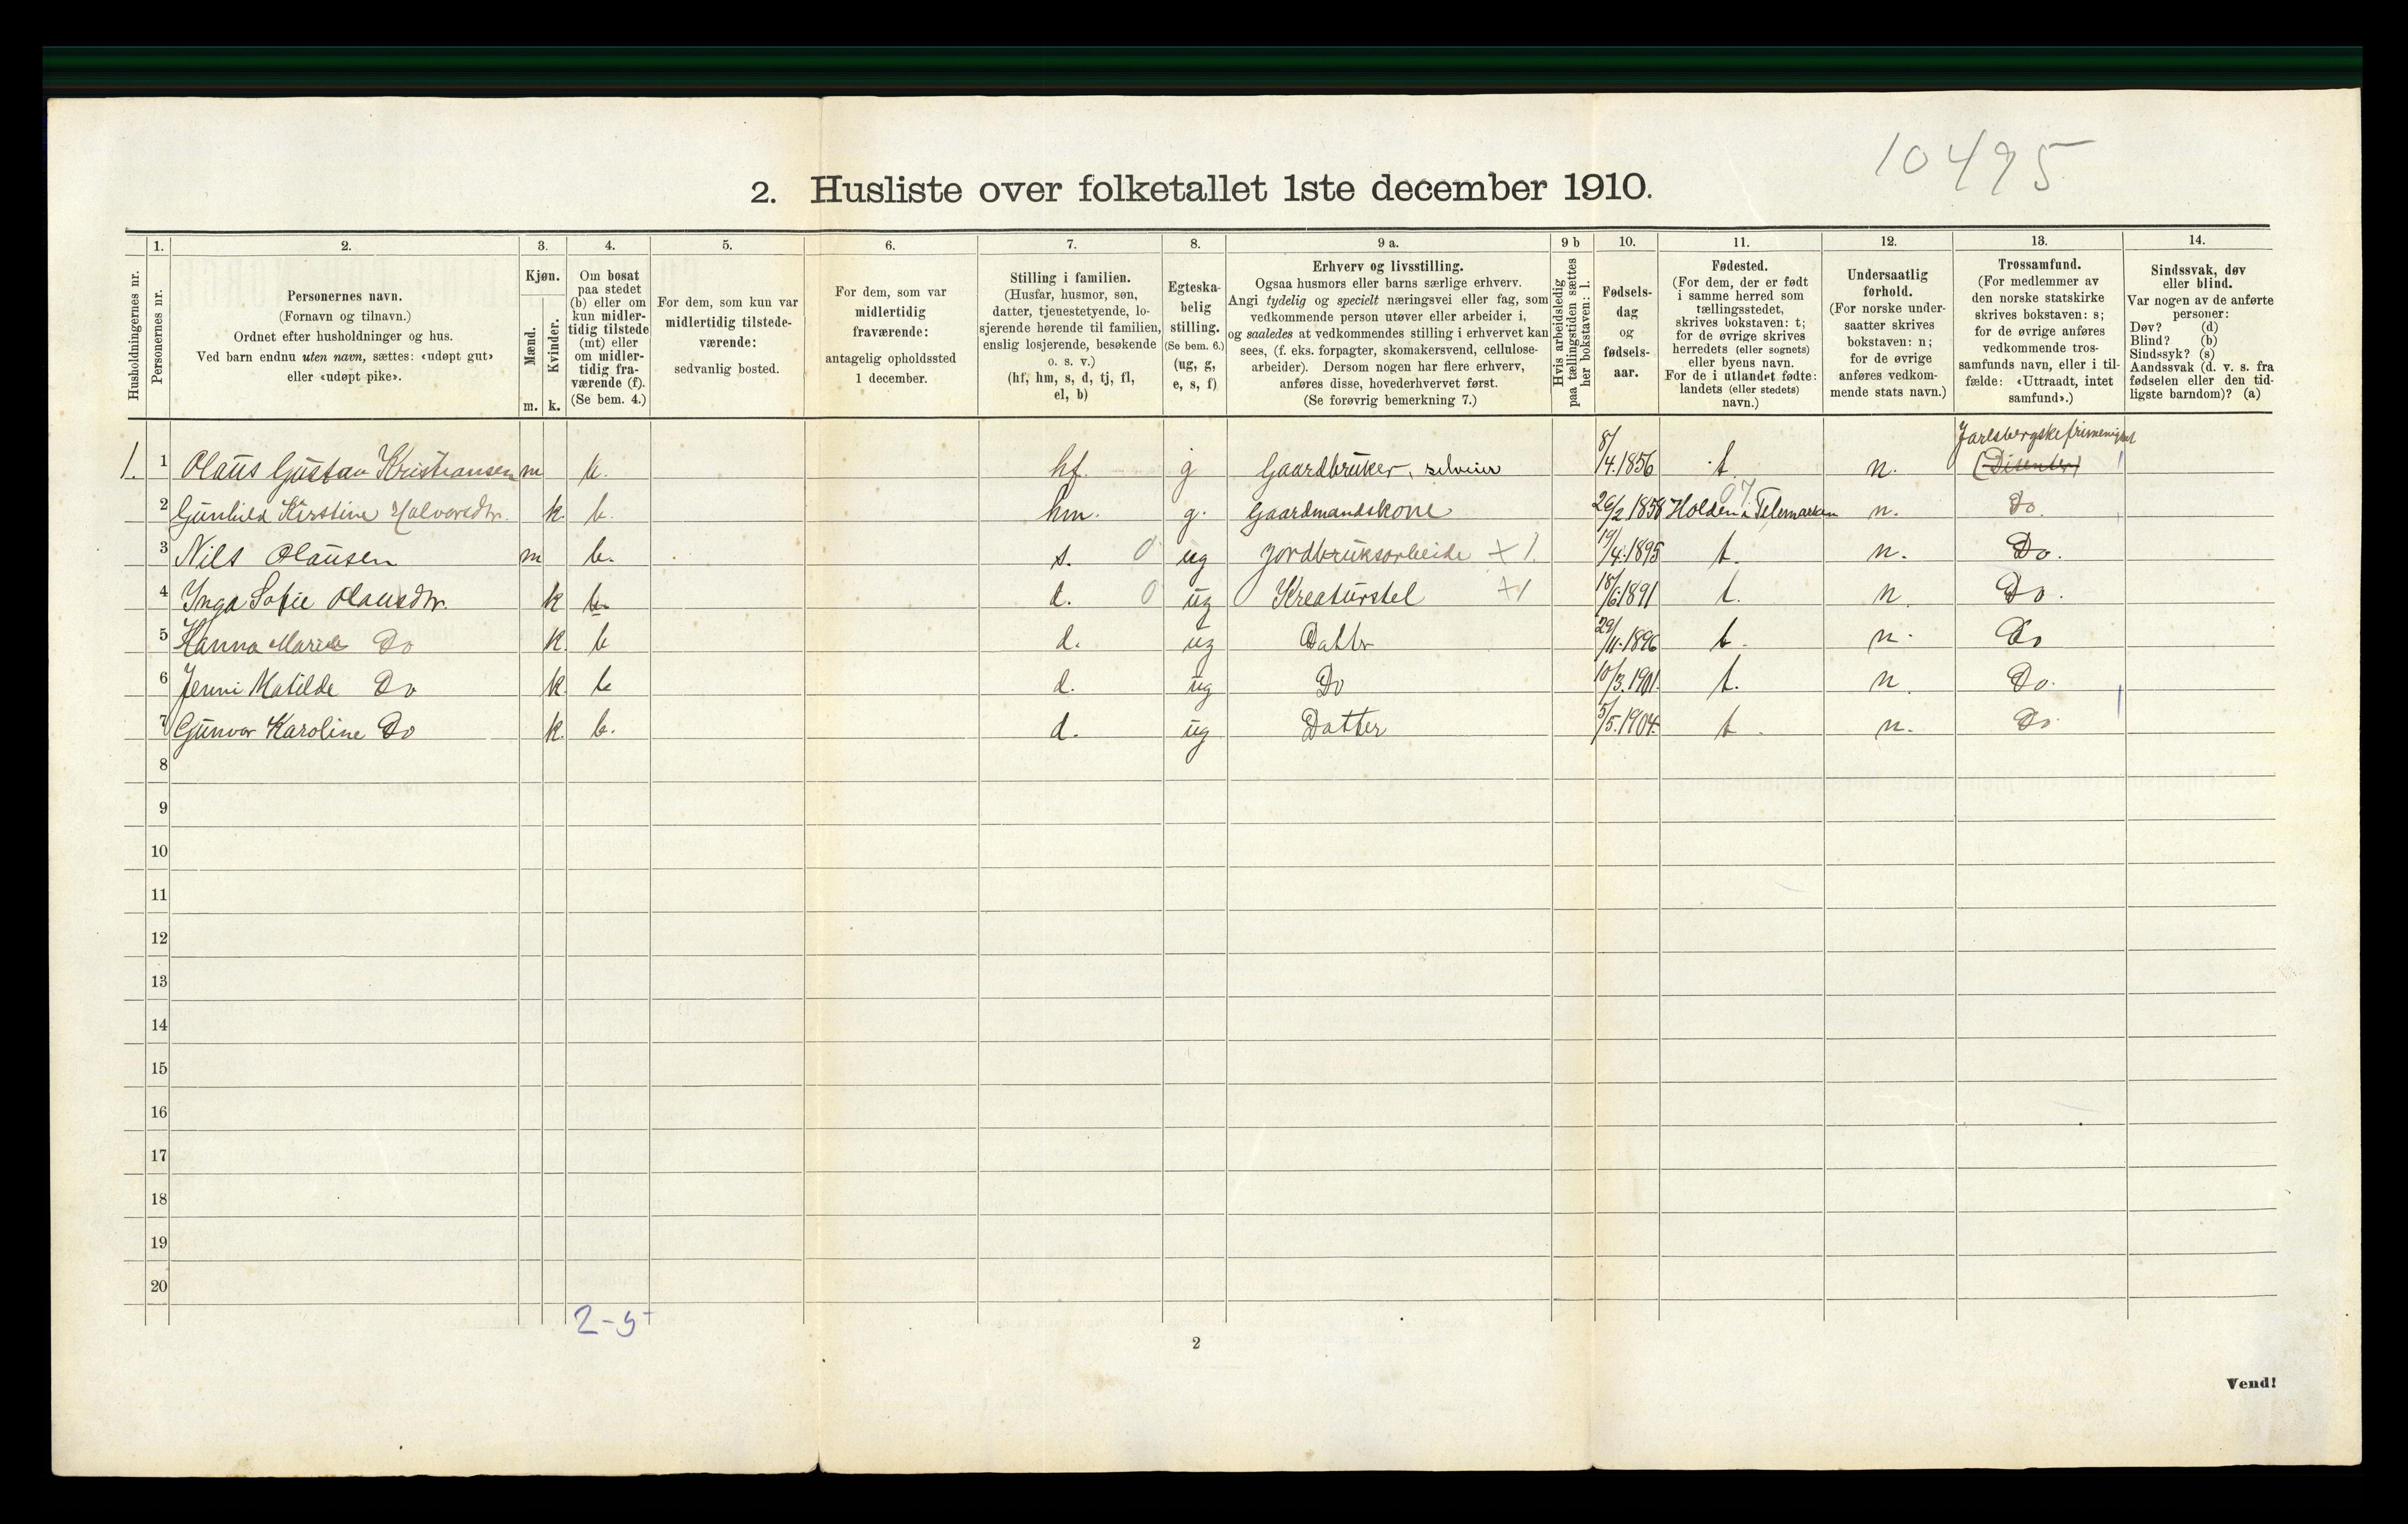 10495
2. Husliste over folketallet 1ste december 1910.
Husholdningernes nr.
1.
Personernes nr.
2.
Personernes navn.
(Fornavn og tilnavn.)
Ordnet efter husholdninger og hus.
Ved barn endnu uten navn, sættes: «udøpt gut»
eller «udøpt pike».
3.
Kjøn.
Mænd.
Kvinder.
m. k.
4.
Om bosat
paa stedet
(b) eller om
kun midler-
tidig tilstede
(mt) eller
om midler-
tidig fra-
værende (f).
(Se bem. 4.)
5.
For dem, som kun var
midlertidig tilstede-
værende:
sedvanlig bosted.
6.
For dem, som var
midlertidig
fraværende:
antagelig opholdssted
1 december.
7.
Stilling i familien.
(Husfar, husmor, søn,
datter, tjenestetyende, lo-
sjerende hørende til familien,
enslig losjerende, besøkende
o. s. v.)
(hf, hm, s, d, tj, fl,
el, b)
8.
Egteska-
belig
stilling.
(Se bem. 6.)
(ug, g,
e, s, f)
9 a.
Erhverv og livsstilling.
Ogsaa husmors eller barns særlige erhverv.
Angi tydelig og specielt næringsvei eller fag, som
vedkommende person utøver eller arbeider i,
og saaledes at vedkommendes stilling i erhvervet kan
sees, (f. eks. forpagter, skomakersvend, cellulose-
arbeider). Dersom nogen har flere erhverv,
anføres disse, hovederhvervet først.
(Se forøvrig bemerkning 7.)
9 b
Hvis arbeidsledig
paa tællingstiden sættes
her bokstaven: l.
10.
Fødsels-
dag
og
fødsels-
aar.
11.
Fødested.
(For dem, der er født
i samme herred som
tællingsstedet,
skrives bokstaven: t;
for de øvrige skrives
herredets (eller sognets)
eller byens navn.
For de i utlandet fødte:
landets (eller stedets)
navn.)
12.
Undersaatlig
forhold.
(For norske under-
saatter skrives
bokstaven: n;
for de øvrige
anføres vedkom-
mende stats navn.)
13.
Trossamfund.
(For medlemmer av
den norske statskirke
skrives bokstaven: s;
for de øvrige anføres
vedkommende tros-
samfunds navn, eller i til-
fælde: «Uttraadt, intet
samfund».)
14.
Sindssvak, døv
eller blind.
Var nogen av de anførte
personer:
Døv? (d)
Blind? (b)
Sindssyk? (s)
Aandssvak (d. v. s. fra
fødselen eller den tid-
ligste barndom)? (a)
Jarlsbergske frimenighet
1. 1 Olaus Gustav Kristiansen m b. hf. g Gaardbruker, selveier 8/4.1856 t n. (Disenter)
2 Gunhild Kirstine Halvorsdtr. k. b. hm. g. Gaardmandskone 26/2.1858 Holden i Telemarken 07 n. Do.
3 Nils Olausen m b. s. 0 ug Jordbruksarbeide x 1. 19/4.1895 t. n. Do.
4 Inga Sofie Olausdtr. k b. d. 0 ug Kreaturstel x1 18/6.1891 t. n. Do.
5 Hanna Marie Do k. b d. ug Datter 29/11.1896 t. n. Do
6 Jenni Matilde Do k. b d. ug Do 10/3.1901. t. n. Do.
7 Gunvor Karoline Do k. b. d. ug Datter 5/5.1904. t. n. Do
8
9
10
11
12
13
14
15
16
17
18
19
20
2-5
2
Vend!